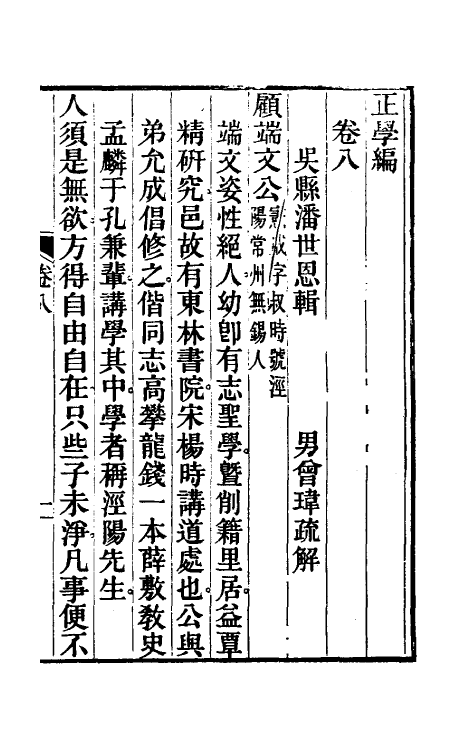 正學編
卷八
吳縣潘世恩輯　男曾瑋疏解
顧端文公憲成字叔時號涇
陽常州無錫人
端文姿性絕人幼卽有志聖學曁削籍里居益覃
精硏究邑故有東林書院宋楊時講道處也公與
弟允成倡修之偕同志高攀龍錢一本薛敷敎史
孟麟于孔兼輩講學其中學者稱涇陽先生
人須是無欲方得自由自在只些子未淨凡事便不
卷八
一